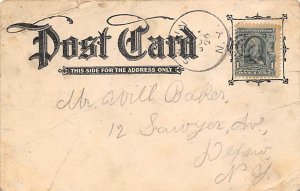 Post Card
THIS SIDE FOR THE ADDRESS ONLY
Mr. Will Baker,
12 Sawyer Ave,
Depew
N. Y.